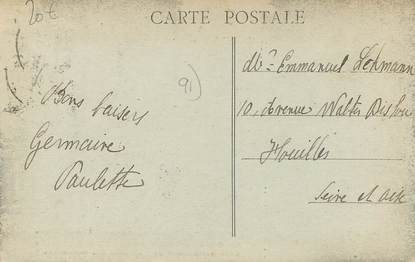 20€
CARTE POSTALE
91)
Bons baisers
Germaine
Paulette
Mr Emmanuel Lehmann
10, Avenue Walter
Houilles
Seine et